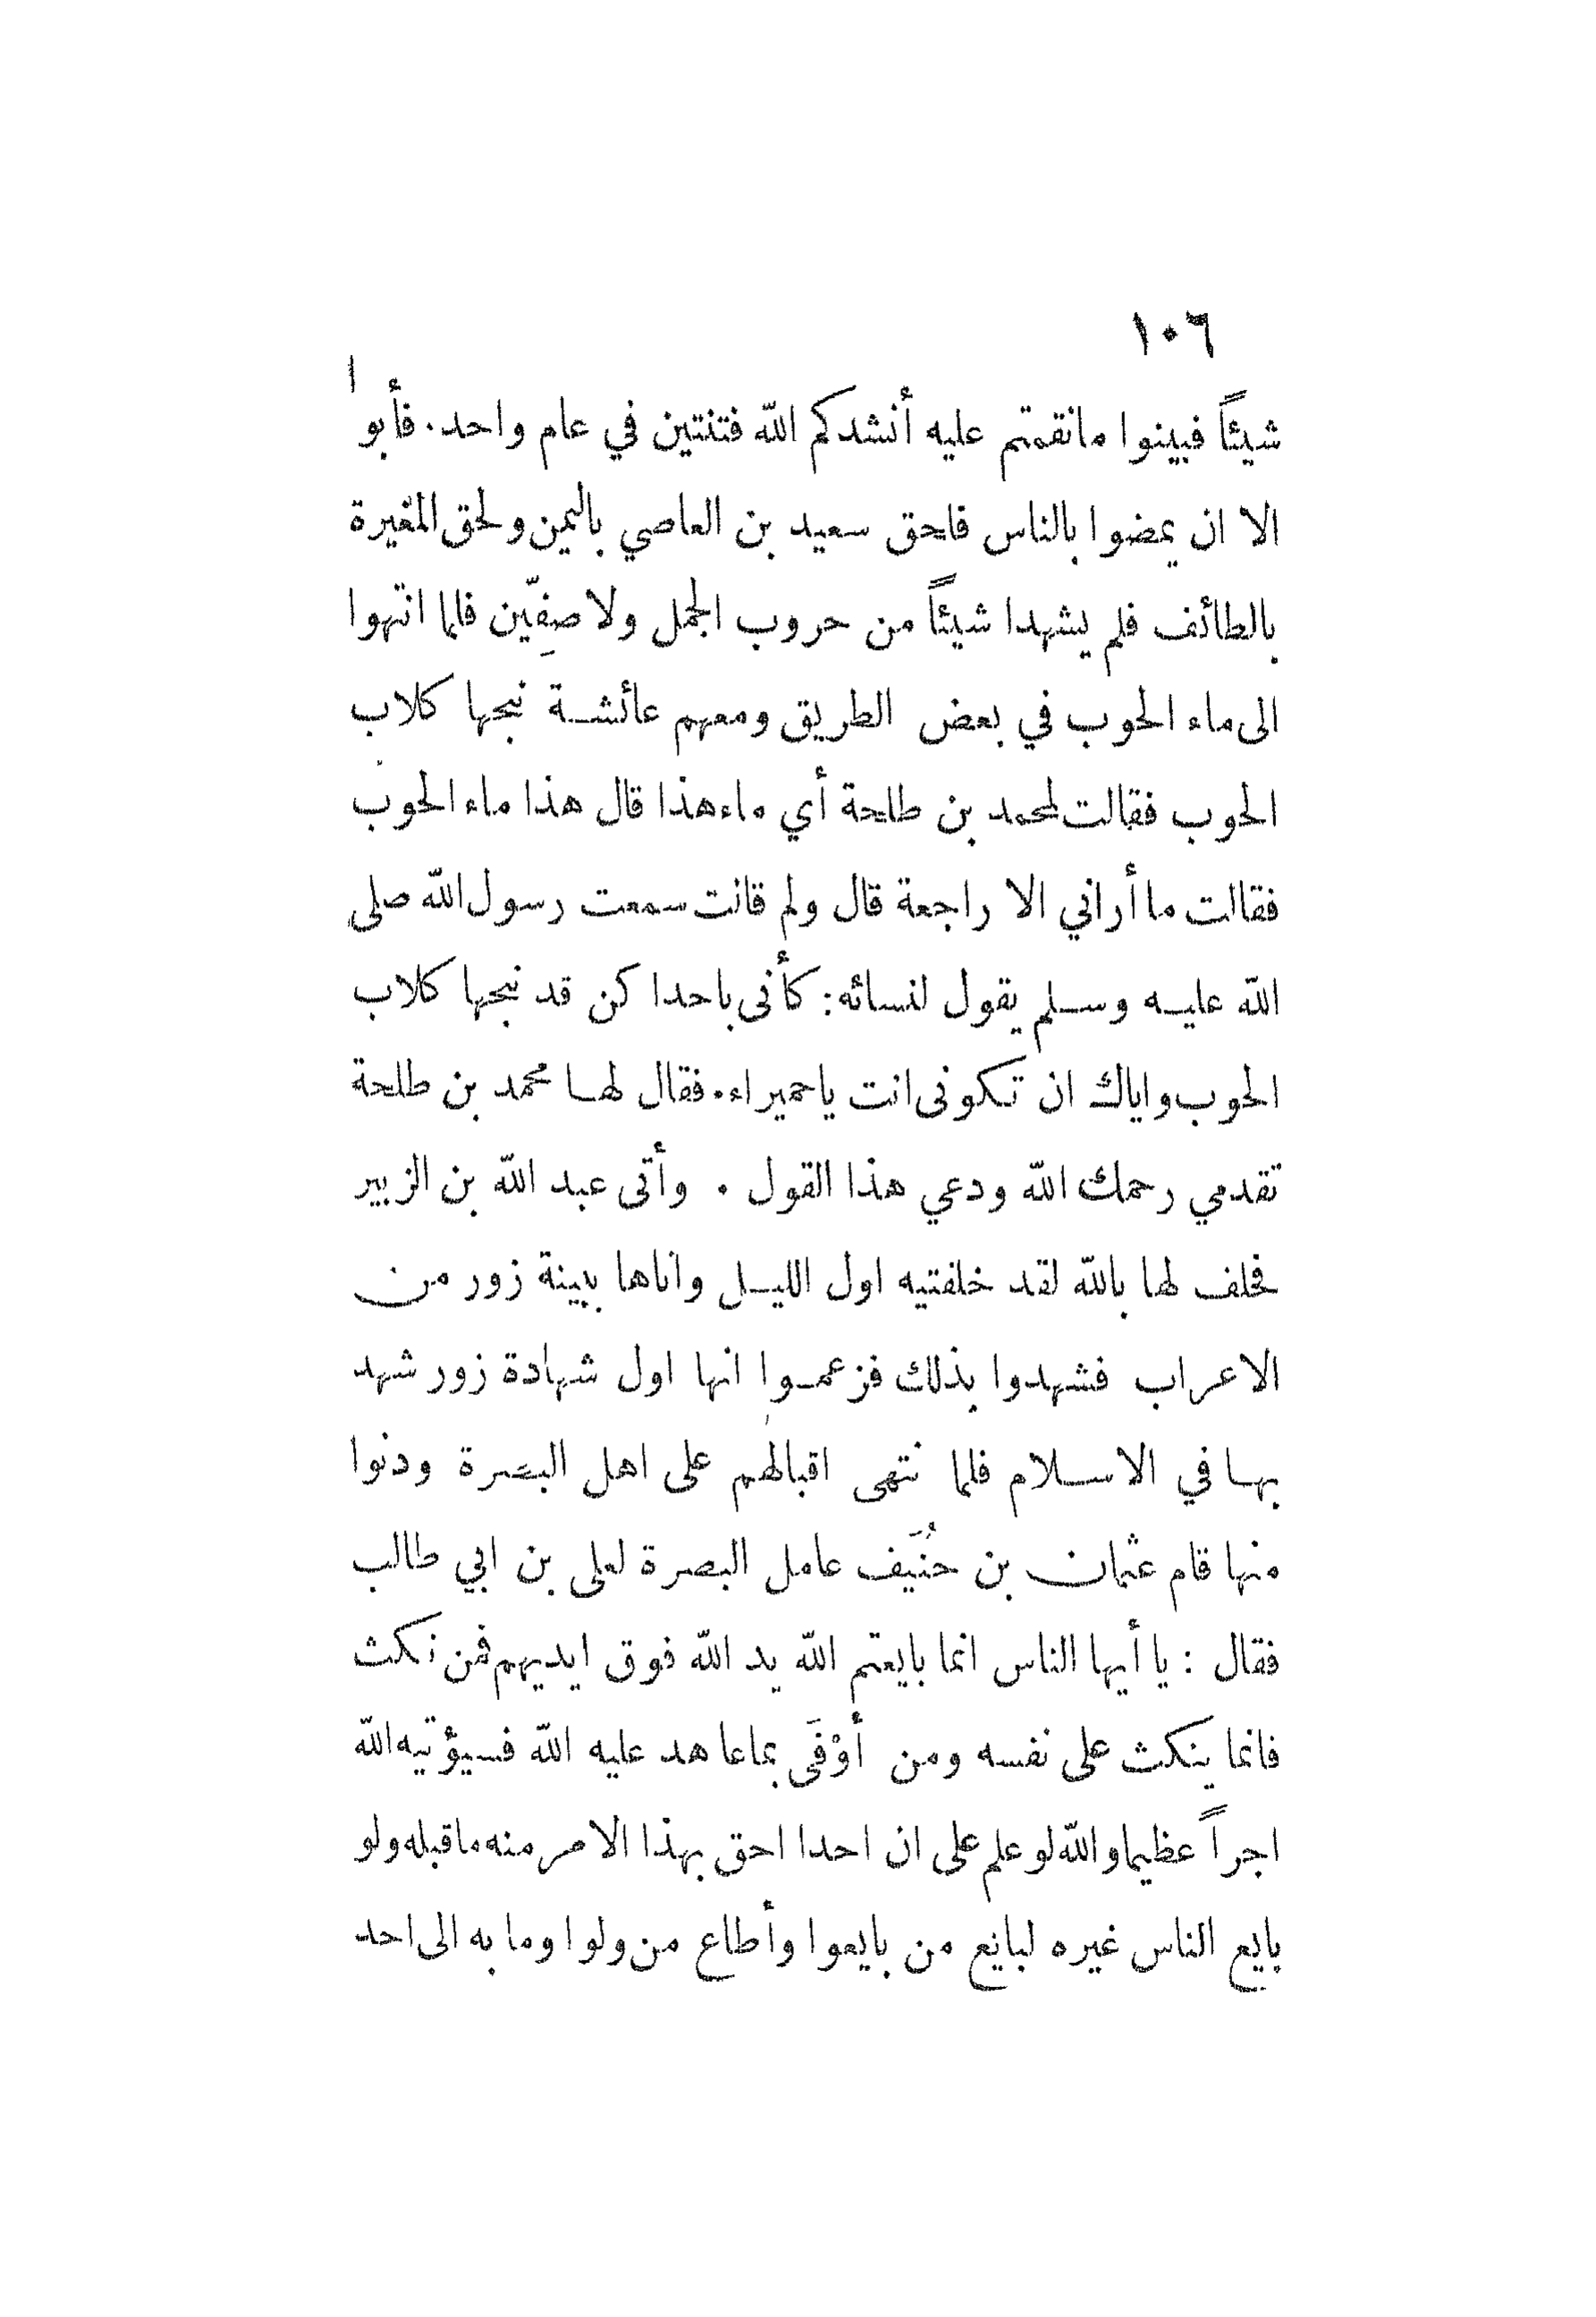 ١٠٦
شيئاً فبينوا مانقمتم عليه أنشدكم الله فتنتين في عام واحد. فأبوا
الا ان يمضوا بالناس فلحق سعيد بن العاصي باليمن ولحق المغيرة
بالطائف فلم يشهدا شيئاً من حروب الجمل ولا صِفّين فلما انتهوا
الى ماء الحوب في بعض الطريق ومعهم عائشة نبحها كلاب
الحوب فقالت لمحمد بن طلحة أي ماء هذا قال هذا ماء الحوب
فقالت ما أراني الا راجعة قال ولم قالت سمعت رسول الله صلى
الله عليه وسلم يقول لنسائه: كأنى باحداكن قد نبحها كلاب
الحوب واياك ان تكونى انت ياحميراء. فقال لها محمد بن طلحة
تقدمي رحمك الله ودعي هذا القول . وأتى عبد الله بن الزبير
فحلف لها بالله لقد خلفتيه اول الليل واتاها ببينة زور من
الاعراب فشهدوا بذلك فزعموا انها اول شهادة زور شهد
بها في الاسلام فلما نتهى اقبالهم على اهل البصرة ودنوا
منها قام عثمان بن حُنَيف عامل البصرة لعلى بن ابي طالب
فقال : يا أيها الناس انما بايعتم الله يد الله فوق ايديهم فمن نكث
فانما ينكث على نفسه ومن أوْفَى بماعاهد عليه الله فسيؤتيه الله
اجراً عظيما والله لو علم على ان احدا احق بهذا الامر منه ماقبله ولو
بايع الناس غيره لبايع من بايعوا وأطاع من ولوا وما به الى احد